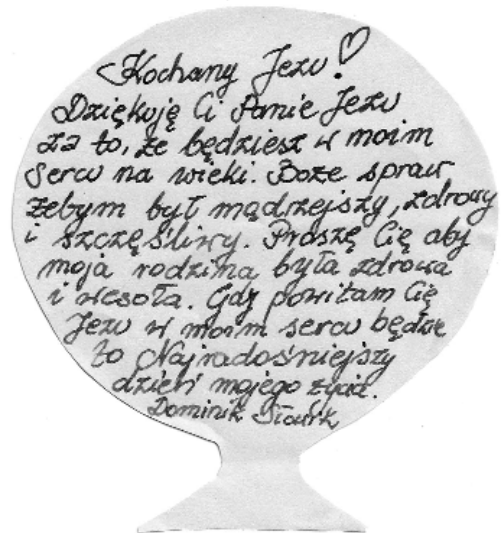 Kochany Jezu!
Dziękuję Ci Panie Jezu
za to, że będziesz w moim
sercu na wieki. Boże spraw
żebym był mądrzejszy, zdrowy
i szczęśliwy. Proszę Cię aby
moja rodzina była zdrowa
i wesoła. Gdy powitam Cię
Jezu w moim sercu będzie
to Najradośniejszy
dzień mojego życia.
Dominik